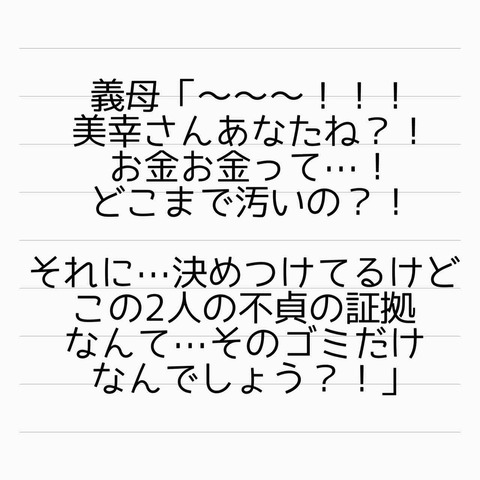 義母「～～～！！！
美幸さんあなたね？！
お金お金って…！
どこまで汚いの？！
それに…決めつけてるけど
この2人の不貞の証拠
なんて…そのゴミだけ
なんでしょう？！」